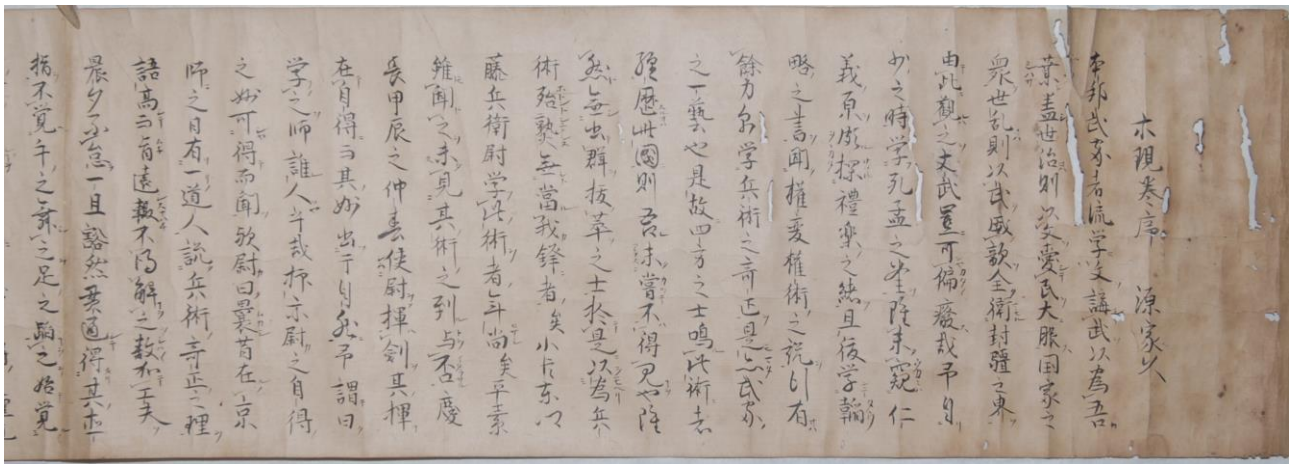 木現巻序 源家久
本邦武家者流学文講武以為吾
業蓋世治則以文愛民大服国家之
衆世乱則以武威敵全衛封疆之東
由此觀之文武豈可偏廢哉予自
少之時学孔孟之 雖未窺仁
義原頗探禮樂之緒且復学韜
略之書聞權変権術之説行有
餘力外学兵術之奇正是亦武家
之一藝也是故四方之士鳴此術者
経歴此國則吾未嘗不得見也雖
然無出群抜萃之士於是以為兵
術殆熟無當我鋒者矣小臣東郷
藤兵衛尉学此術者年尚矣平素
雖聞之未見其術之列与否慶
長甲辰之仲春使尉揮剣其揮
在自得而其妙出于自然予謂曰
学之師誰人乎哉指示尉之自得
之妙可得而聞歟尉曰曩昔在京
師之日有一道人説兵術奇正之理
語高而旨遠報不得解之数加工夫
晨夕不怠一旦豁然貫通得其
指不覚手之舞之足之蹈之始覚